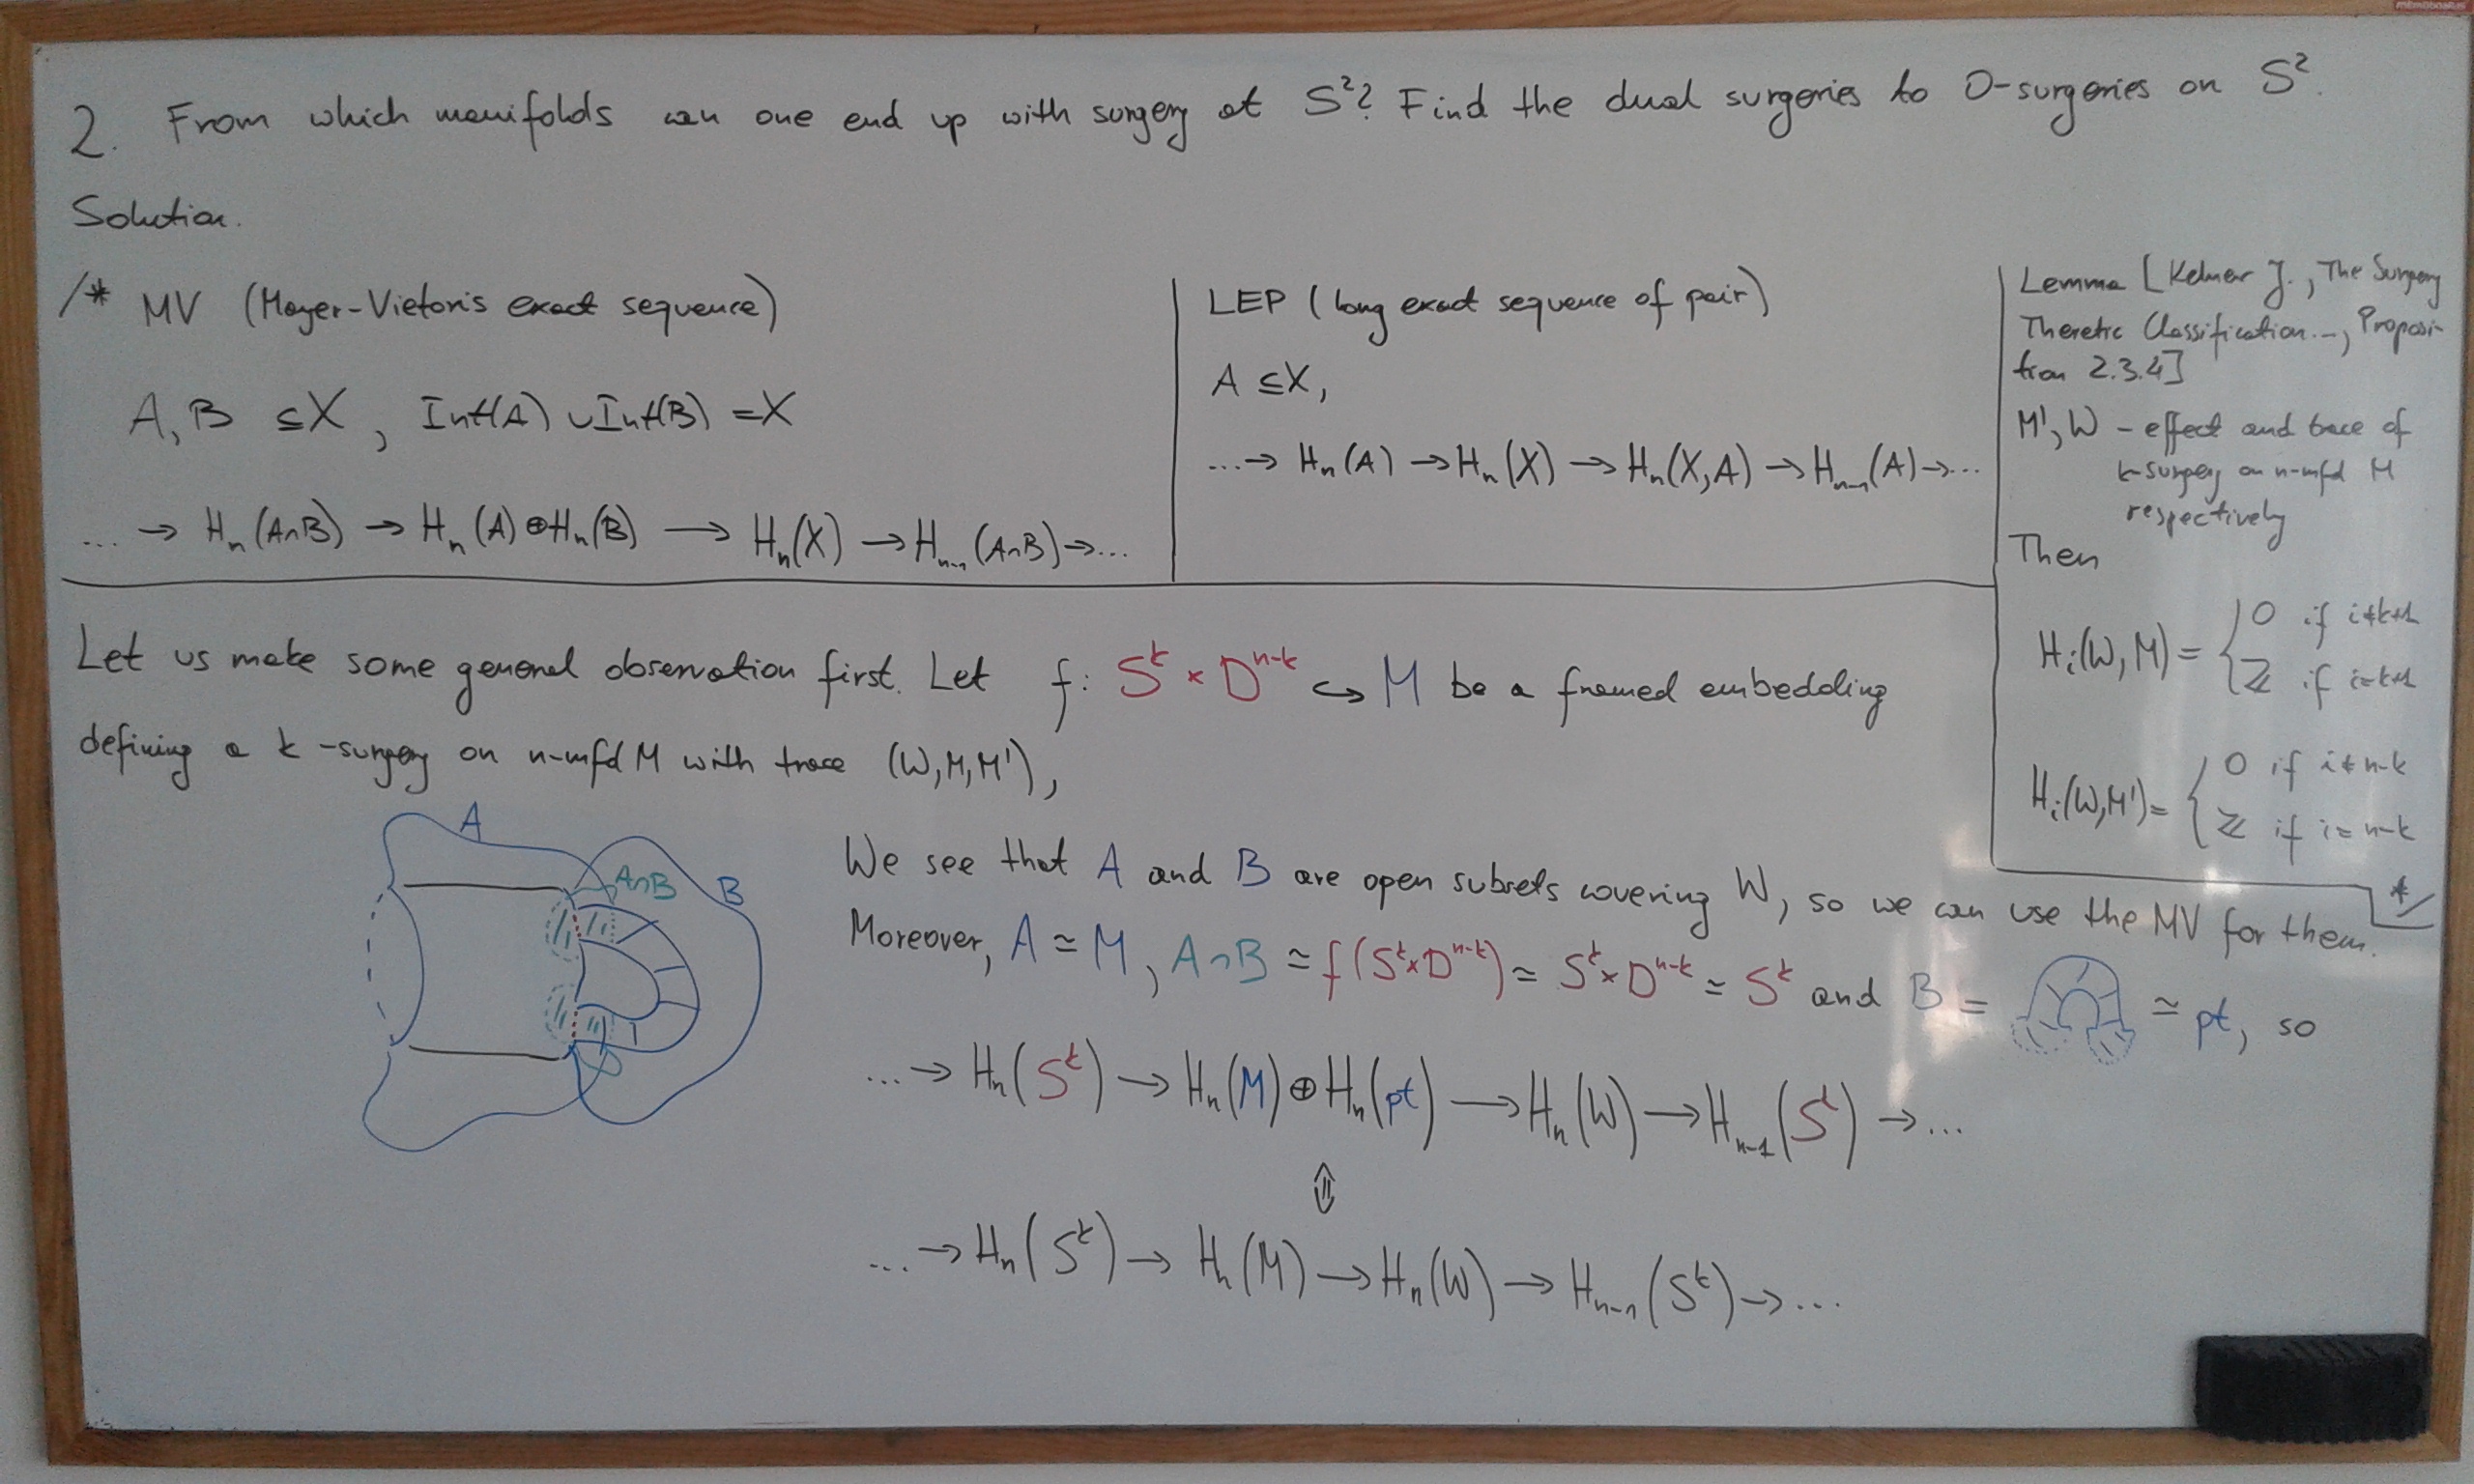 2. From which manifolds can one end up with surgery at S²? Find the dual surgeries to 0-surgeries on S².
Solution.
/* MV (Mayer-Vietoris exact sequence)
A, B ⊆ X, Int(A) ∪ Int(B) = X
... → Hₙ(A∩B) → Hₙ(A) ⊕ Hₙ(B) → Hₙ(X) → Hₙ₋₁(A∩B) → ...
LEP (long exact sequence of pair)
A ⊆ X,
... → Hₙ(A) → Hₙ(X) → Hₙ(X,A) → Hₙ₋₁(A) → ...
Lemma [Kelner J., The Surgery
Theretic Classification..., Proposi-
tion 2.3.4]
M', W - effect and trace of
k-surgery on n-mfd M
respectively
Then
Hᵢ(W, M) = { 0 if i≠k+1
ℤ if i=k+1
Hᵢ(W,M') = { 0 if i≠n-k
ℤ if i=n-k
*/
Let us make some general observation first. Let f: Sᵏ × Dⁿ⁻ᵏ ↪ M be a framed embedding
defining a k-surgery on n-mfd M with trace (W,M,M'),
A
A∩B
B
We see that A and B are open subsets covering W, so we can use the MV for them.
Moreover, A ≃ M, A∩B ≃ f(Sᵏ×Dⁿ⁻ᵏ) ≃ Sᵏ×Dⁿ⁻ᵏ ≃ Sᵏ and B = ≃ pt, so
... → Hₙ(Sᵏ) → Hₙ(M) ⊕ Hₙ(pt) → Hₙ(W) → Hₙ₋₁(Sᵏ) → ...
⇕
... → Hₙ(Sᵏ) → Hₙ(M) → Hₙ(W) → Hₙ₋₁(Sᵏ) → ...